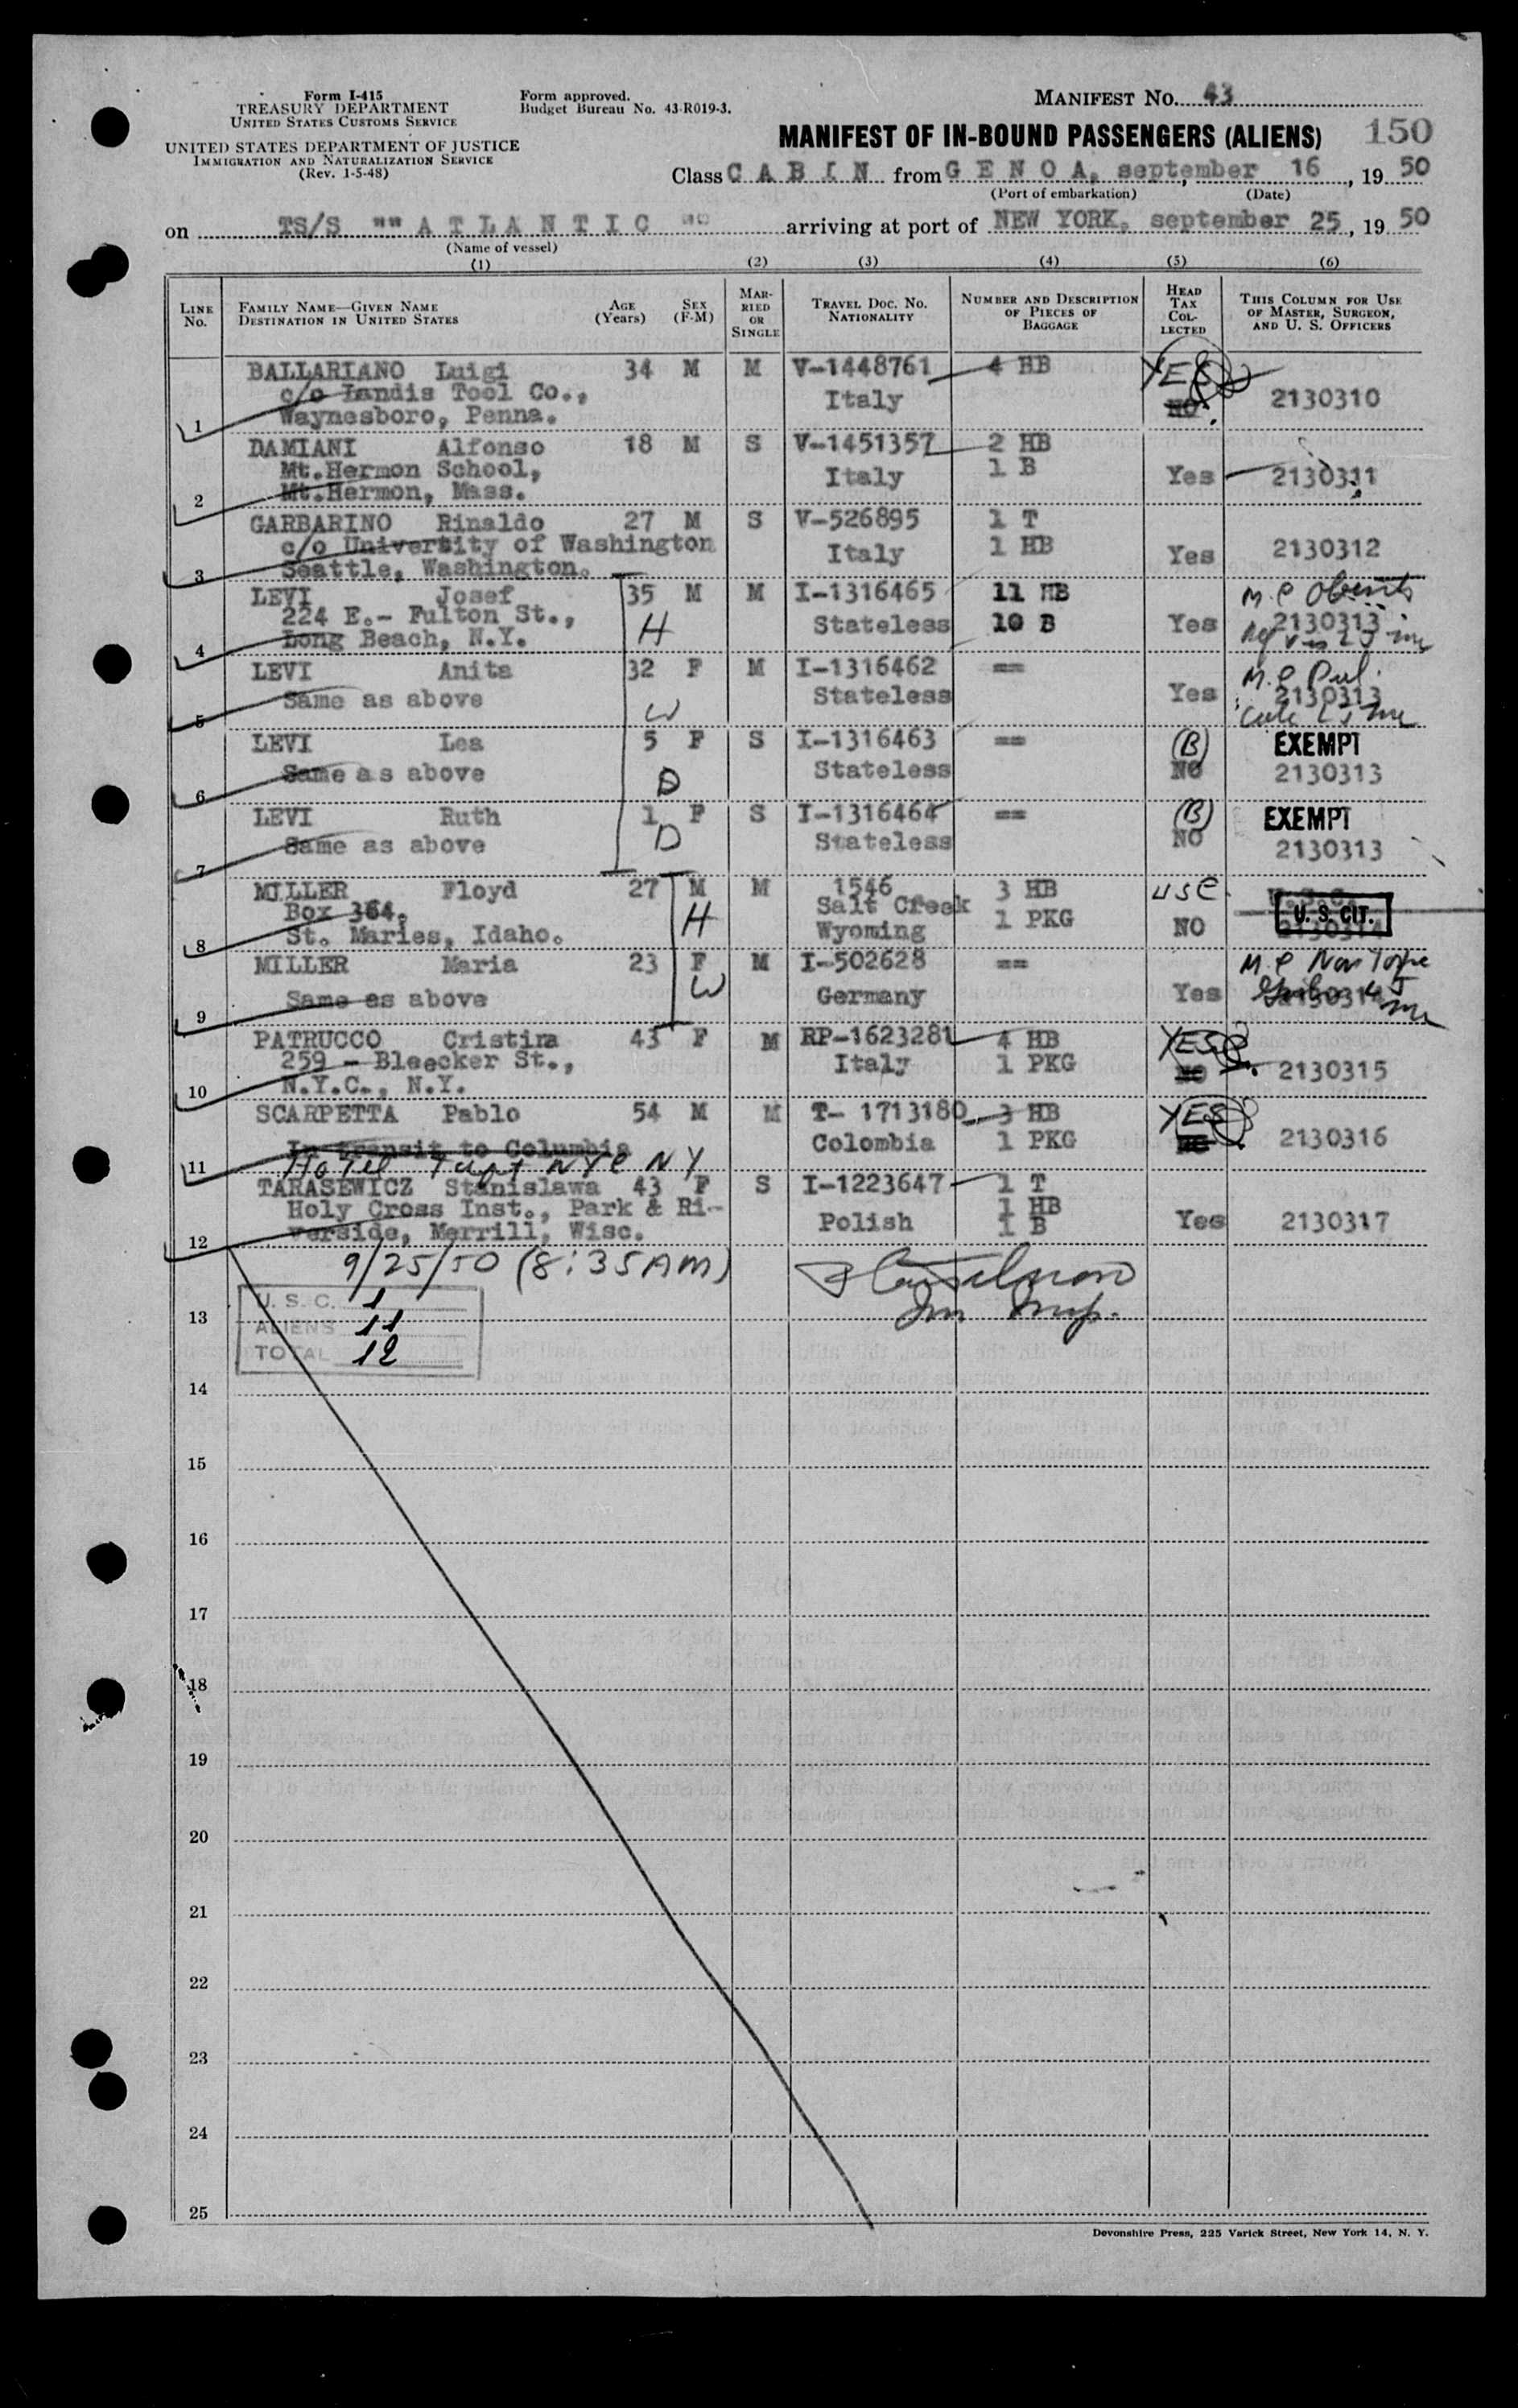 Form I-415
TREASURY DEPARTMENT
UNITED STATES CUSTOMS SERVICE
UNITED STATES DEPARTMENT OF JUSTICE
IMMIGRATION AND NATURALIZATION SERVICE
(Rev. 1-5-48)
Form approved.
Budget Bureau No. 43-R019-3.
MANIFEST No. 43
MANIFEST OF IN-BOUND PASSENGERS (ALIENS) 150
Class C A B I N from G E N O A, september 16, 19 50
(Port of embarkation) (Date)
on TS/S "" A T L A N T I C "" arriving at port of NEW YORK, september 25, 19 50
(Name of vessel)
(1) (2) (3) (4) (5) (6)
LINE No. FAMILY NAME—GIVEN NAME DESTINATION IN UNITED STATES AGE (Years) SEX (F-M) MARRIED OR SINGLE TRAVEL DOC. NO. NATIONALITY NUMBER AND DESCRIPTION OF PIECES OF BAGGAGE HEAD TAX COLLECTED THIS COLUMN FOR USE OF MASTER, SURGEON, AND U. S. OFFICERS
BALLARIANO Luigi 34 M M V-1448761 4 HB YES
c/o Landis Tool Co., Italy NO 2130310
1 Waynesboro, Penna.
DAMIANI Alfonso 18 M S V-1451357 2 HB
Mt.Hermon School, Italy 1 B Yes 2130311
2 Mt.Hermon, Mass.
GARBARINO Rinaldo 27 M S V-526895 1 T
c/o University of Washington Italy 1 HB Yes 2130312
3 Seattle, Washington.
LEVI Josef 35 M M I-1316465 11 HB M.C
224 E.- Fulton St., H Stateless 10 B Yes 2130313
4 Long Beach, N.Y.
LEVI Anita 32 F M I-1316462 == M.C
5 Same as above W Stateless Yes 2130313
LEVI Lea 5 F S I-1316463 == (B) EXEMPT
6 Same as above D Stateless NO 2130313
LEVI Ruth 1 F S I-1316464 == (B) EXEMPT
7 Same as above D Stateless NO 2130313
MILLER Floyd 27 M M 1546 3 HB USC U.S.C.
Box 364, H Salt Creek 1 PKG U. S. CIT.
8 St. Maries, Idaho. Wyoming NO 2130314
MILLER Maria 23 F M I-502628 == M.C
9 Same as above W Germany Yes 2130314
PATRUCCO Cristina 43 F M RP-1623281 4 HB YES
259 - Bleecker St., Italy 1 PKG NO 2130315
10 N.Y.C., N.Y.
SCARPETTA Pablo 54 M M T- 1713180 3 HB YES
In transit to Columbia Colombia 1 PKG NO 2130316
11 Hotel Taft NYC NY
TARASEWICZ Stanislawa 43 F S I-1223647 1 T
Holy Cross Inst., Park & Ri- Polish 1 HB Yes 2130317
12 verside, Merrill, Wisc. 1 B
9/25/50 (8:35AM)
U. S. C. 1
13 ALIENS 11
TOTAL 12
Imm Insp.
14
15
16
17
18
19
20
21
22
23
24
25
Devonshire Press, 225 Varick Street, New York 14, N. Y.